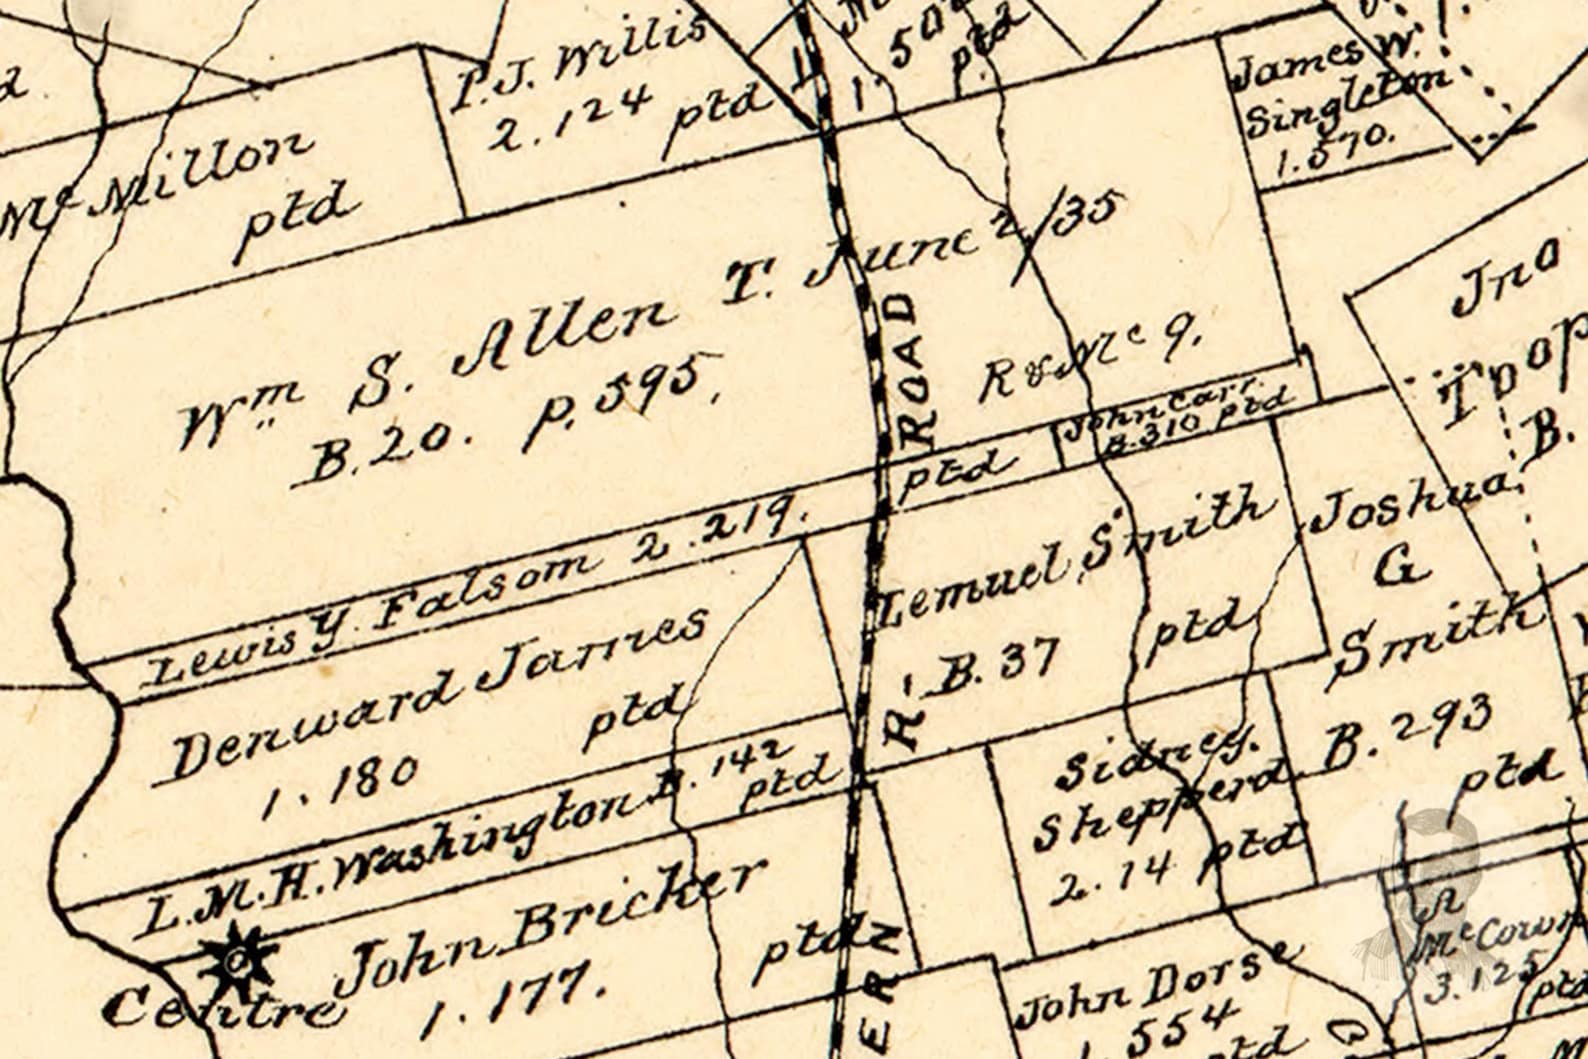 P.J. Willis
2.124 ptd
1.50
ptd
James W.
Singleton
1.570.
Mc Millon
ptd
Wm S. Allen T. June 2/35
B.20. p.595.
R & Mc 9.
Jno
Toop
B.
John Carr
B.310 ptd
Lewis Y. Falsom 2.219. ptd
Denward James
1.180 ptd
Lemuel Smith
B.37 ptd
Joshua
G
Smith
B.293
ptd
L.M.H. Washington B.142
ptd
Sidney.
Shepperd
2.14 ptd
John Bricker
1.177. ptd
Centre
John Dorse
1.554
ptd
A
McCown
3.125
ptd
ERN R. ROAD